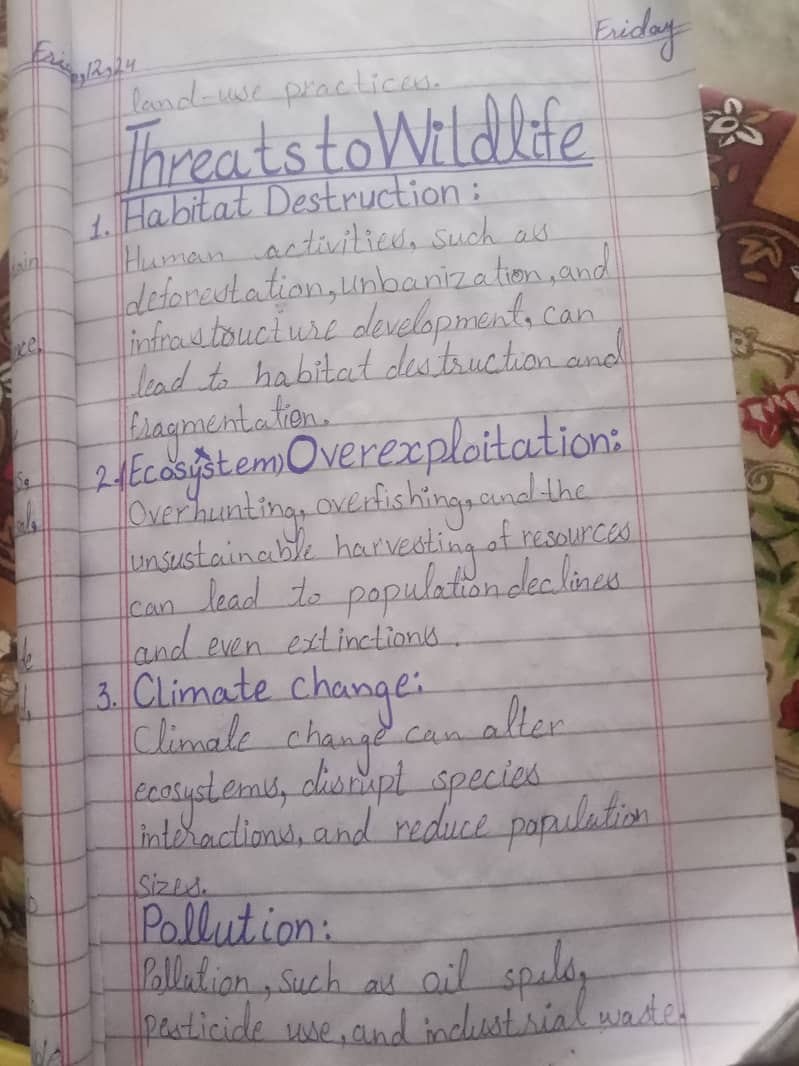 Friday
land-use practices.
Threats to Wildlife
1. Habitat Destruction:
Human activities, such as
deforestation, unbanization, and
infrastoucture development, can
lead to habitat destruction and
fragmentation.
2. (Ecosystem) Overexploitation:
Overhunting, overfishing, and the
unsustainable harvesting of resources
can lead to population declines
and even extinctions.
3. Climate change:
Climate change can alter
ecosystems, disrupt species
interactions, and reduce population
sizes.
Pollution:
Pollution, such as oil spils,
pesticide use, and industrial waste